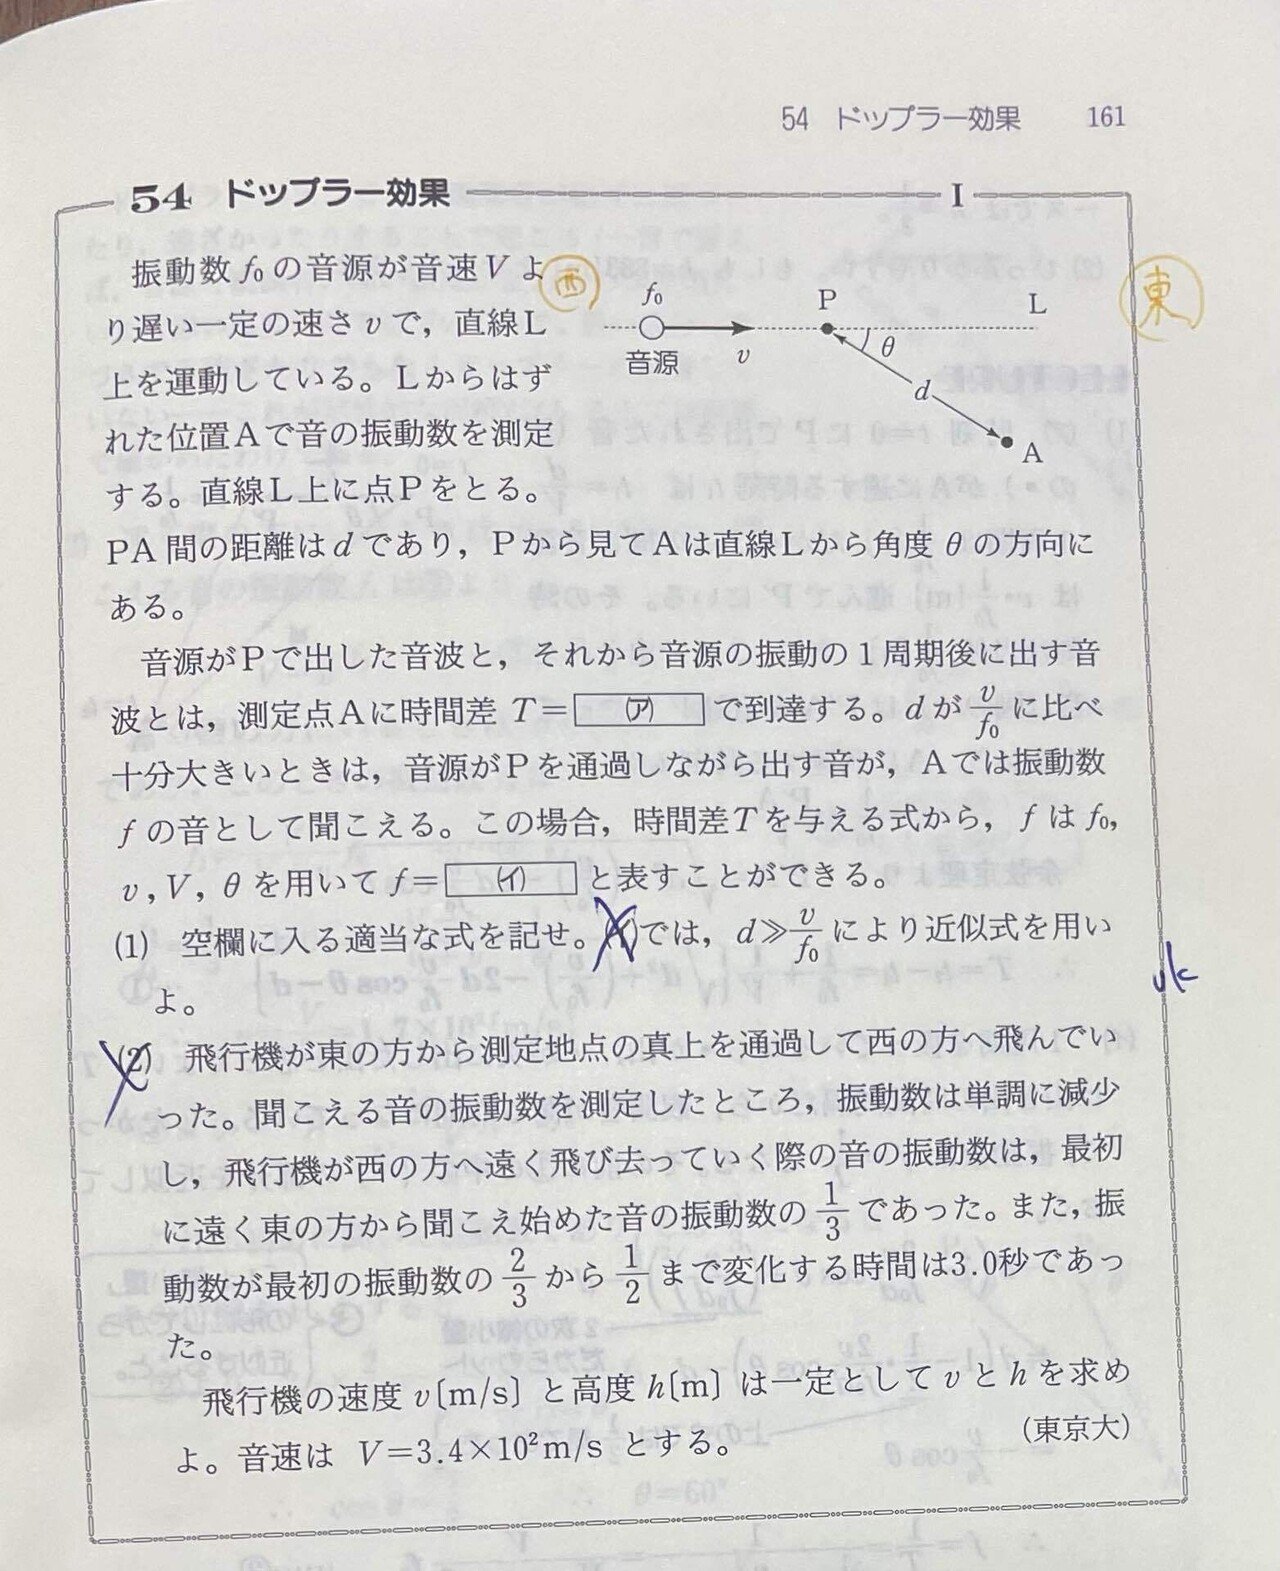 54 ドップラー効果 161
54 ドップラー効果 I
振動数 f₀ の音源が音速 V よ
り遅い一定の速さ v で，直線L
上を運動している。Lからはず
れた位置Aで音の振動数を測定
する。直線L上に点Pをとる。
西
f₀
音源
v
P
θ
d
A
L
東
PA間の距離は d であり，Pから見てAは直線Lから角度 θ の方向に
ある。
音源がPで出した音波と，それから音源の振動の1周期後に出す音
波とは，測定点Aに時間差 T＝(ア)で到達する。d が v/f₀ に比べ
十分大きいときは，音源がPを通過しながら出す音が，Aでは振動数
f の音として聞こえる。この場合，時間差Tを与える式から，f は f₀，
v，V，θ を用いて f＝(イ)と表すことができる。
(1) 空欄に入る適当な式を記せ。(イ)では，d≫v/f₀ により近似式を用い
よ。
(2) 飛行機が東の方から測定地点の真上を通過して西の方へ飛んでい
った。聞こえる音の振動数を測定したところ，振動数は単調に減少
し，飛行機が西の方へ遠く飛び去っていく際の音の振動数は，最初
に遠く東の方から聞こえ始めた音の振動数の 1/3 であった。また，振
動数が最初の振動数の 2/3 から 1/2 まで変化する時間は3.0秒であっ
た。
飛行機の速度 v〔m/s〕と高度 h〔m〕は一定として v と h を求め
よ。音速は V＝3.4×10²m/s とする。
（東京大）